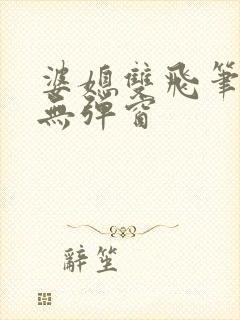 婆媳雙飛筆
無彈窗
辭笙